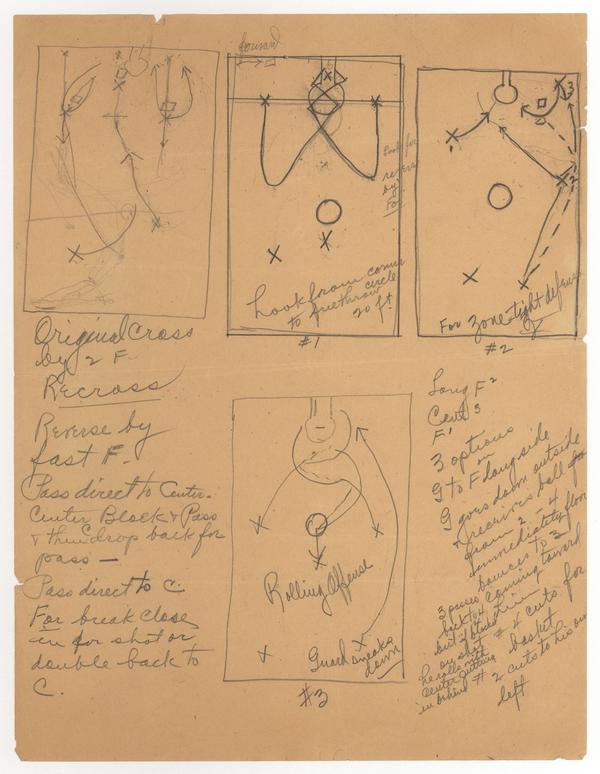 forward
Look for
reverse
by
For
Look from corner
to freethrow circle
20 ft.
#1
1
2
3
2
For Zone tight defense
#2
Original Cross
by 2 F.
Recross
Reverse by
fast F.
Pass direct to Center.
Center Block & Pass
& then drop back for
pass —
Pass direct to C.
For break close
in for shot or
double back to
C.
C
Rolling Offense
Guard sneaks
down
#3
Long F 2
Cent 3
F 1
3 options
on
G to F along side
G goes down outside
& receives ball
from 2 - 4
immediately
bounces to 3
3 passes coming toward
back to 4
but 3
on shot # 4 cuts for
he rolls basket
Center cutting
in behind # 2 cuts to his own
left